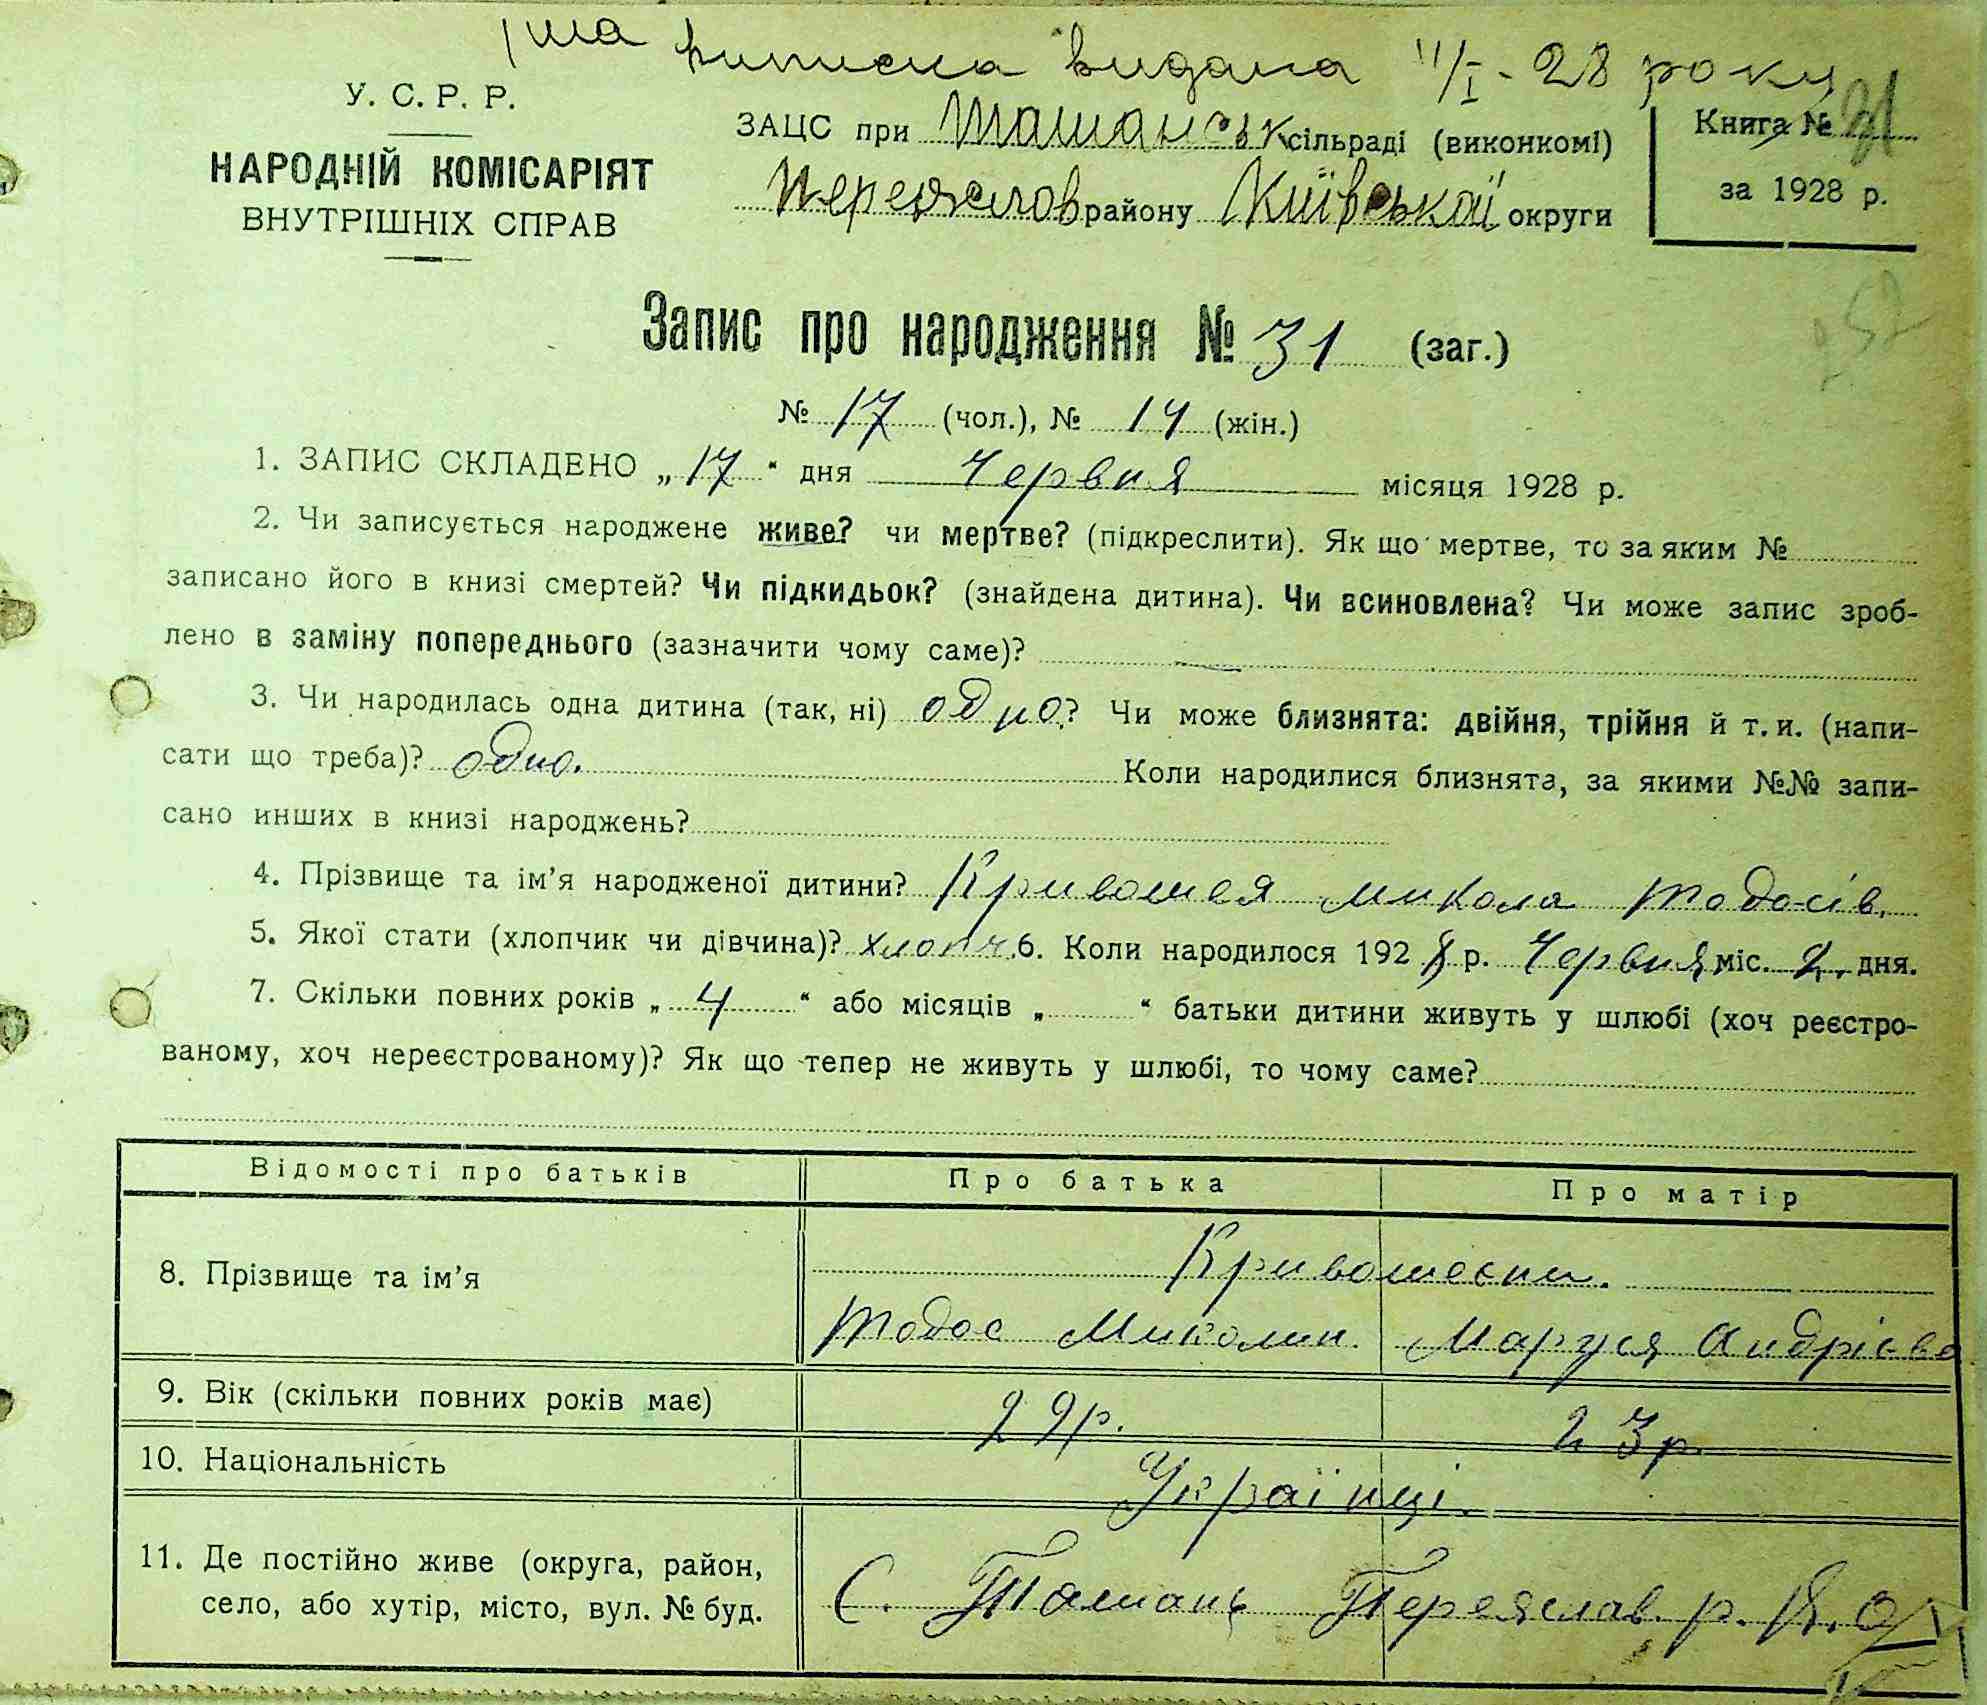 1ша виписка видана 11/I - 28 року
У. С. Р. Р.
НАРОДНІЙ КОМІСАРІЯТ
ВНУТРІШНІХ СПРАВ
ЗАЦС при Ташанськ сільраді (виконкомі)
Переяслов району Київської округи
Книга №
за 1928 р.
Запис про народження № 31 (заг.)
№ 17 (чол.), № 14 (жін.)
1. ЗАПИС СКЛАДЕНО „17“ дня Червня місяця 1928 р.
2. Чи записується народжене живе? чи мертве? (підкреслити). Як що мертве, то за яким №
записано його в книзі смертей? Чи підкидьок? (знайдена дитина). Чи всиновлена? Чи може запис зроб-
лено в заміну попереднього (зазначити чому саме)?
3. Чи народилась одна дитина (так, ні) одно? Чи може близнята: двійня, трійня й т. и. (напи-
сати що треба)? одно. Коли народилися близнята, за якими №№ запи-
сано инших в книзі народжень?
4. Прізвище та ім’я народженої дитини? Кривошея Микола Тодосів.
5. Якої стати (хлопчик чи дівчина)? хлопч. 6. Коли народилося 1928 р. Червня міс. 2. дня.
7. Скільки повних років „4“ або місяців „ “ батьки дитини живуть у шлюбі (хоч реєстро-
ваному, хоч нереєстрованому)? Як що тепер не живуть у шлюбі, то чому саме?
Відомості про батьків Про батька Про матір
8. Прізвище та ім’я Кривошеєни.
Тодос Миколин. Маруся Андрієва
9. Вік (скільки повних років має) 29р. 23р.
10. Національність Українці.
11. Де постійно живе (округа, район,
село, або хутір, місто, вул. № буд.
С. Ташань Переяслав. р. К. о